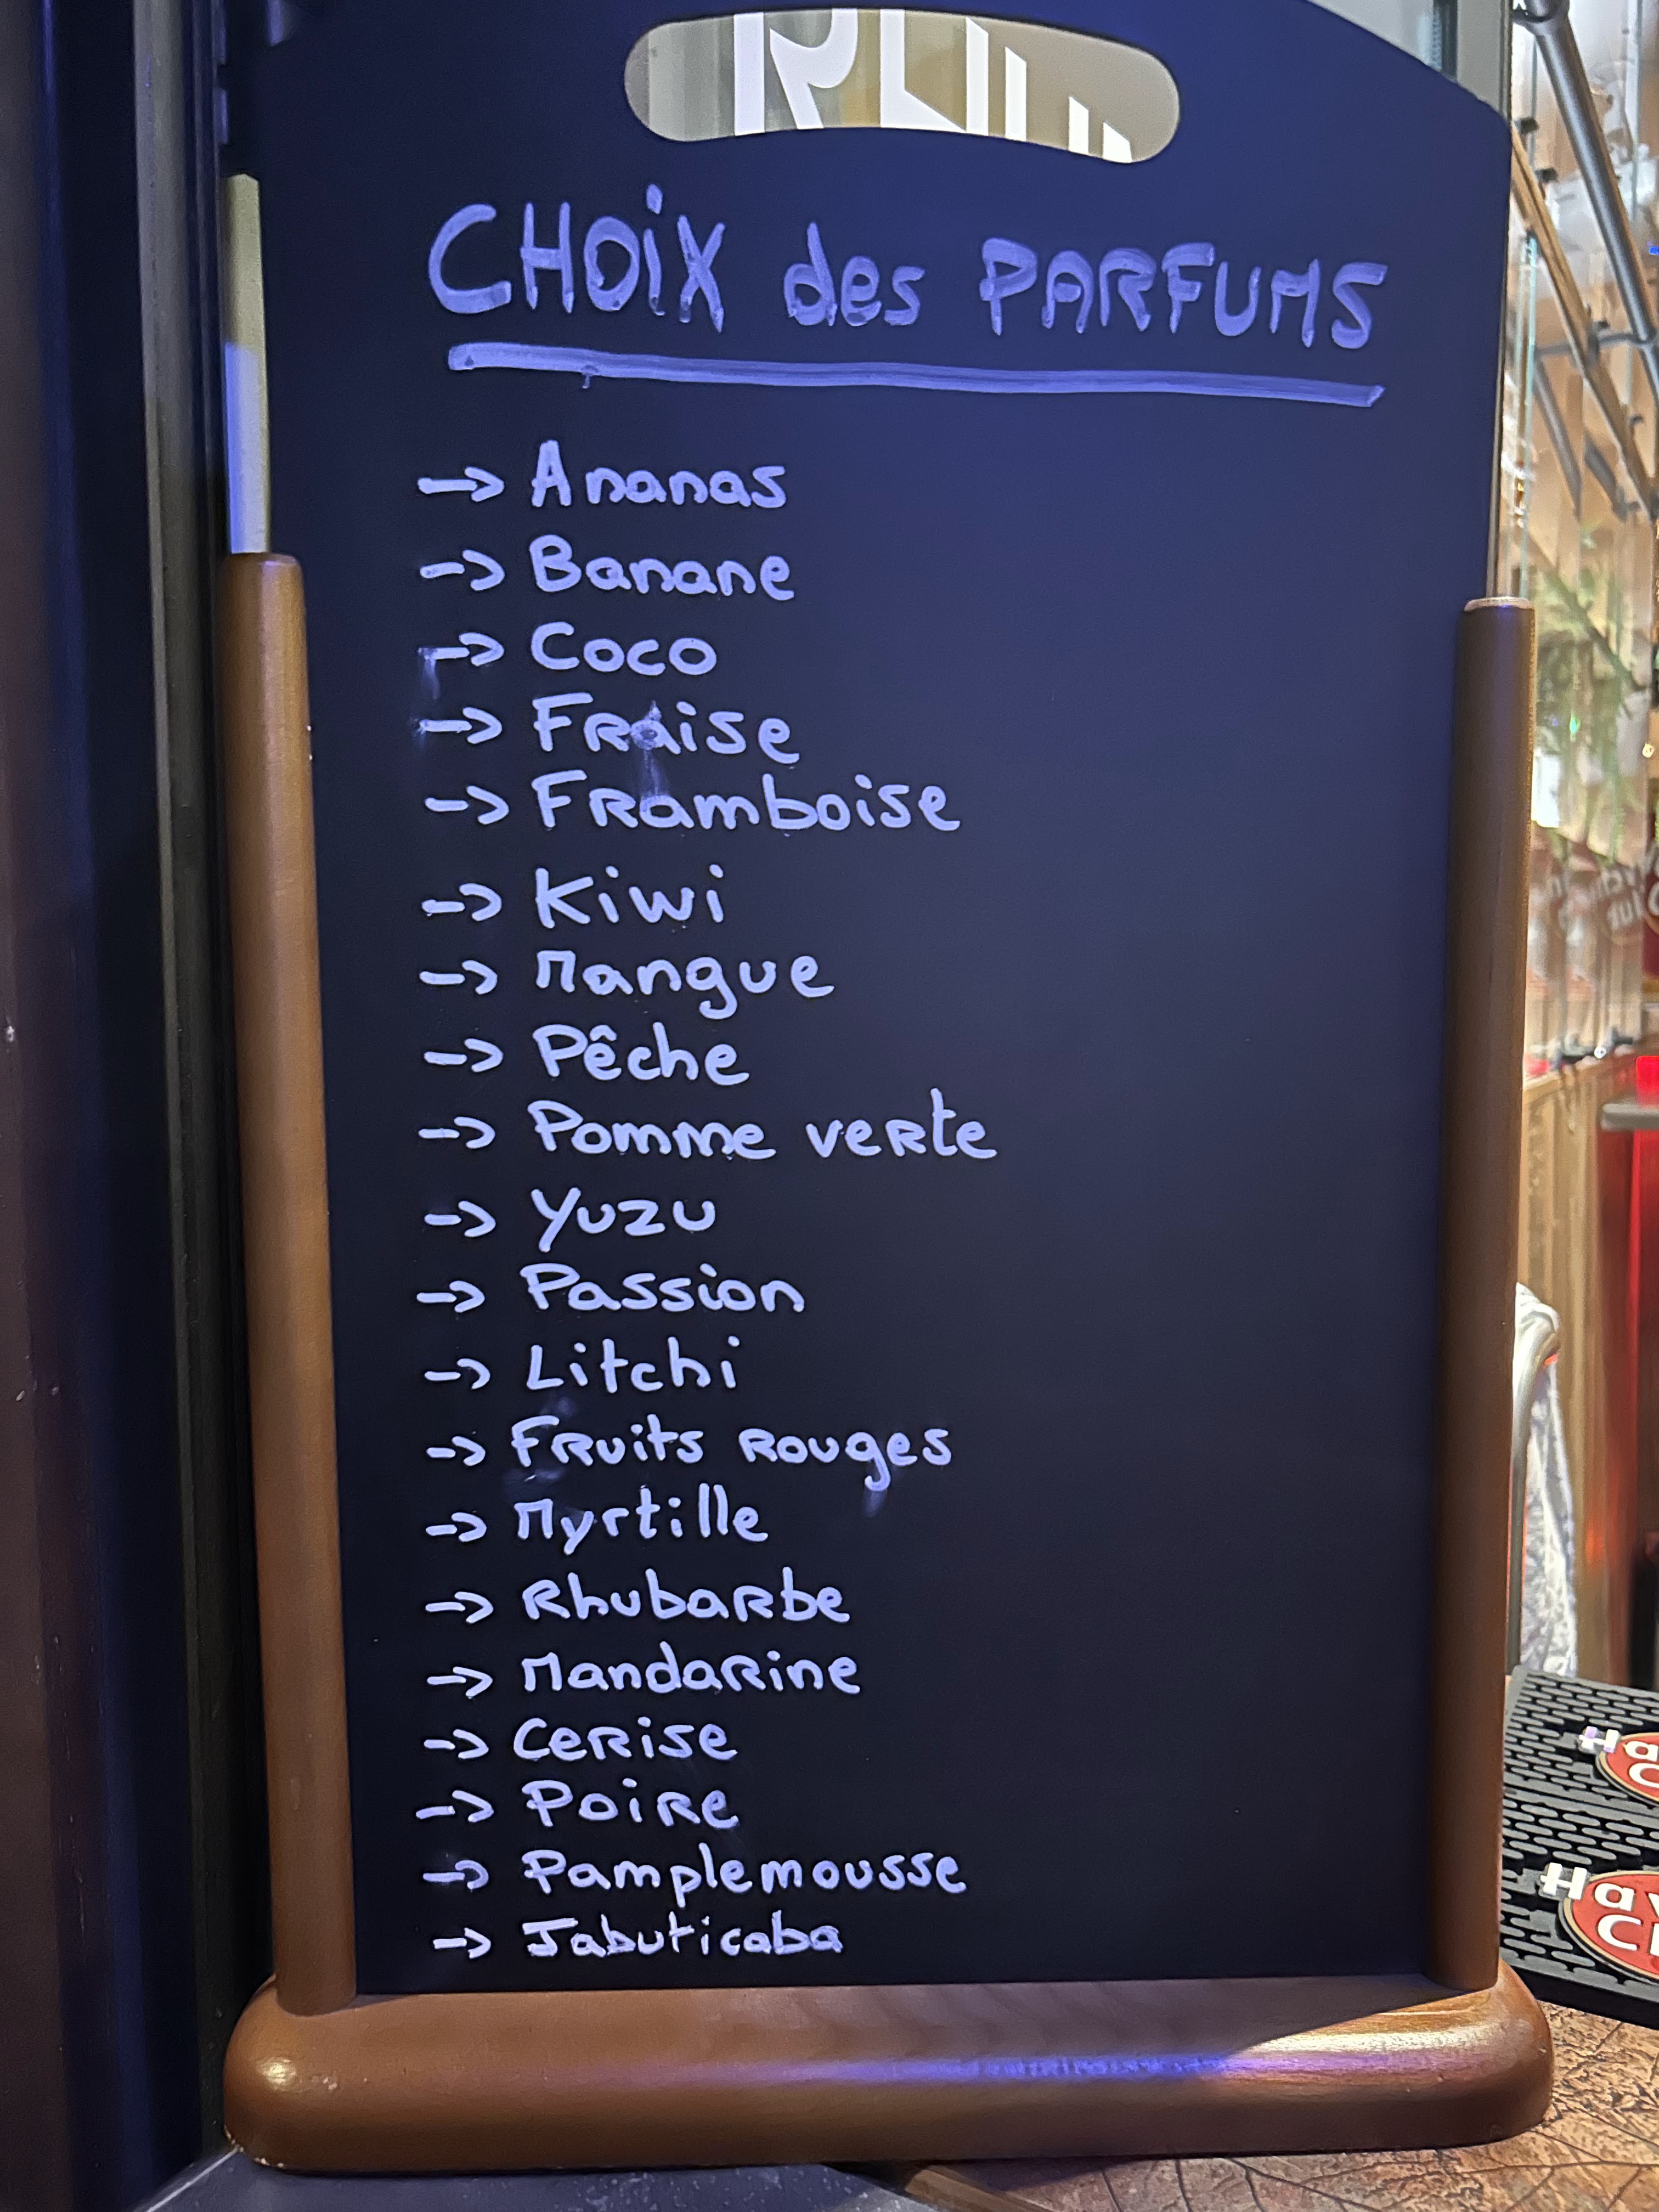 CHOIX des PARFUMS
→ Ananas
→ Banane
→ Coco
→ Fraise
→ Framboise
→ Kiwi
→ Mangue
→ Pêche
→ Pomme verte
→ Yuzu
→ Passion
→ Litchi
→ Fruits Rouges
→ Myrtille
→ Rhubarbe
→ Mandarine
→ Cerise
→ Poire
→ Pamplemousse
→ Jabuticaba